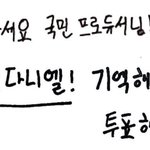 세요 국민 프로듀서님!
다니엘! 기억해
투표